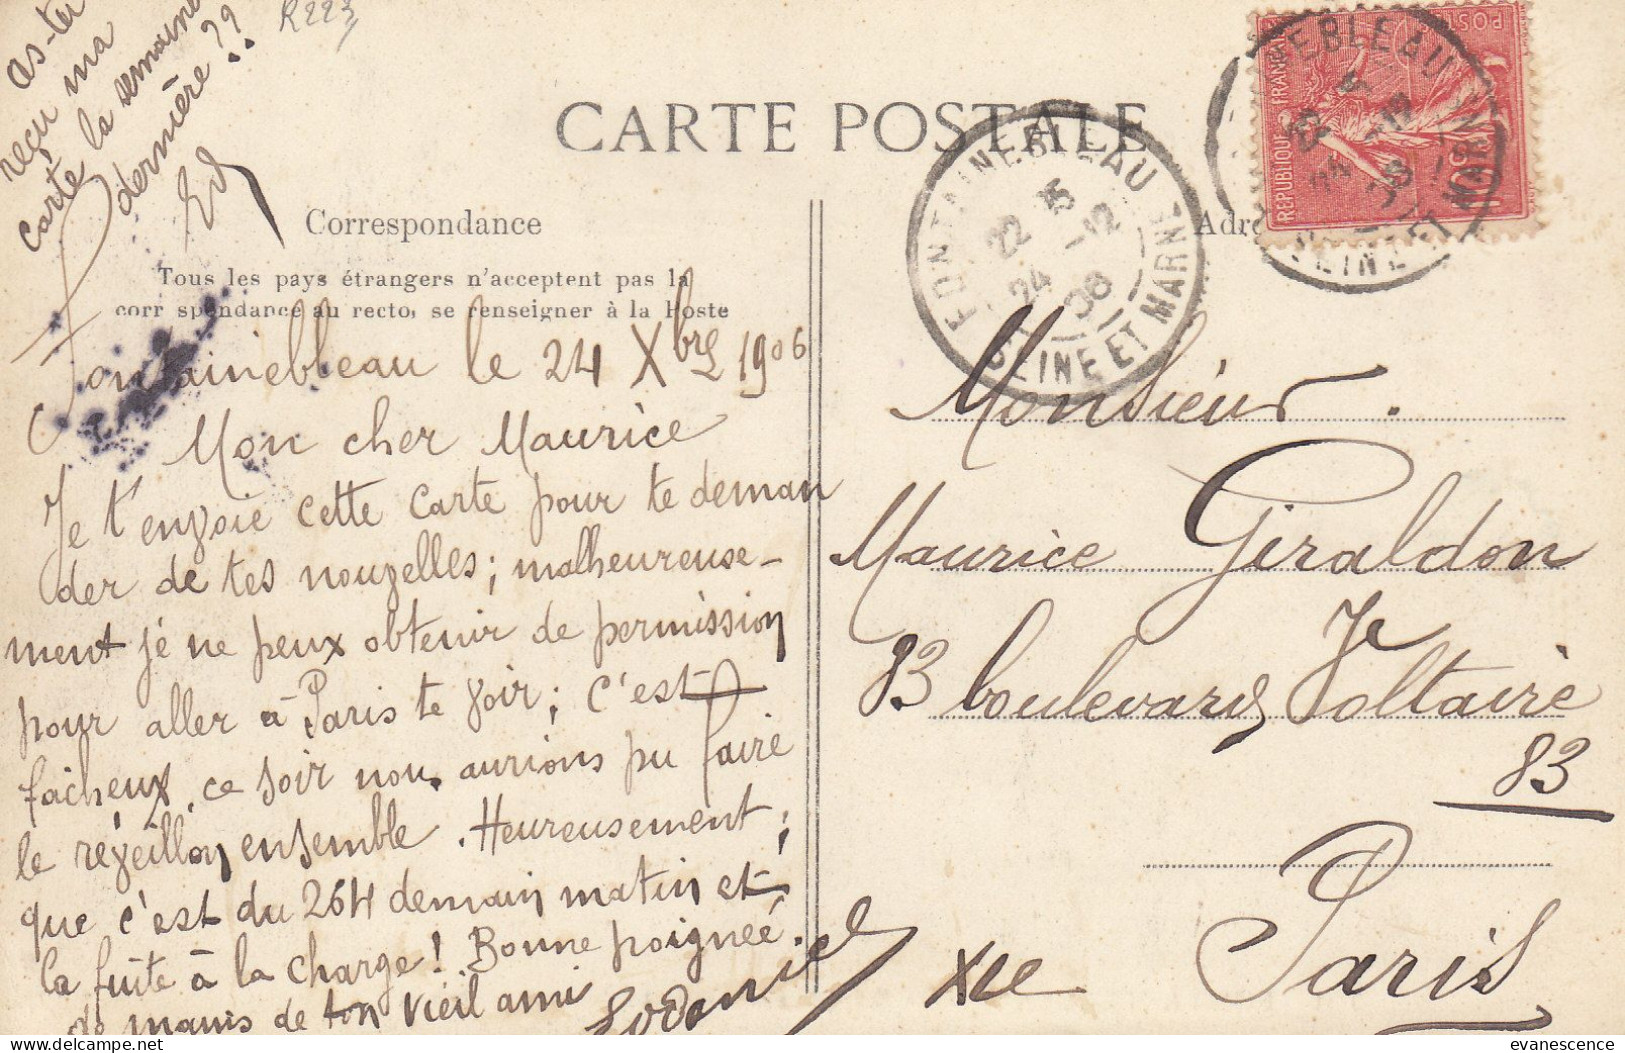 as-tu
reçu ma
carte la semaine
dernière ??
Ed
R223
CARTE POSTALE
Correspondance
Tous les pays étrangers n'acceptent pas la
corr spondance au recto, se renseigner à la Poste
Fontainebleau le 24 Xbre 1906
Mon cher Maurice
Je t'envoie cette carte pour te deman
der de tes nouvelles ; malheureuse-
ment je ne peux obtenir de permission
pour aller à Paris te voir ; c'est
facheux, ce soir nous aurions pu faire
le réveillon ensemble. Heureusement ;
que c'est du 264 demain matin et
la fuite à la charge ! Bonne poignée
de mains de ton vieil ami
FONTAINEBLEAU
22 15
24 -12
06
SEINE ET MARNE
REPUBLIQUE FRANÇAISE
POSTES
10
EBLEAU
EINE ET MARN
Adre
Monsieur
Maurice Giraldon
83 boulevard Voltaire
83
Paris
XIe
delcampe.net
evanescence